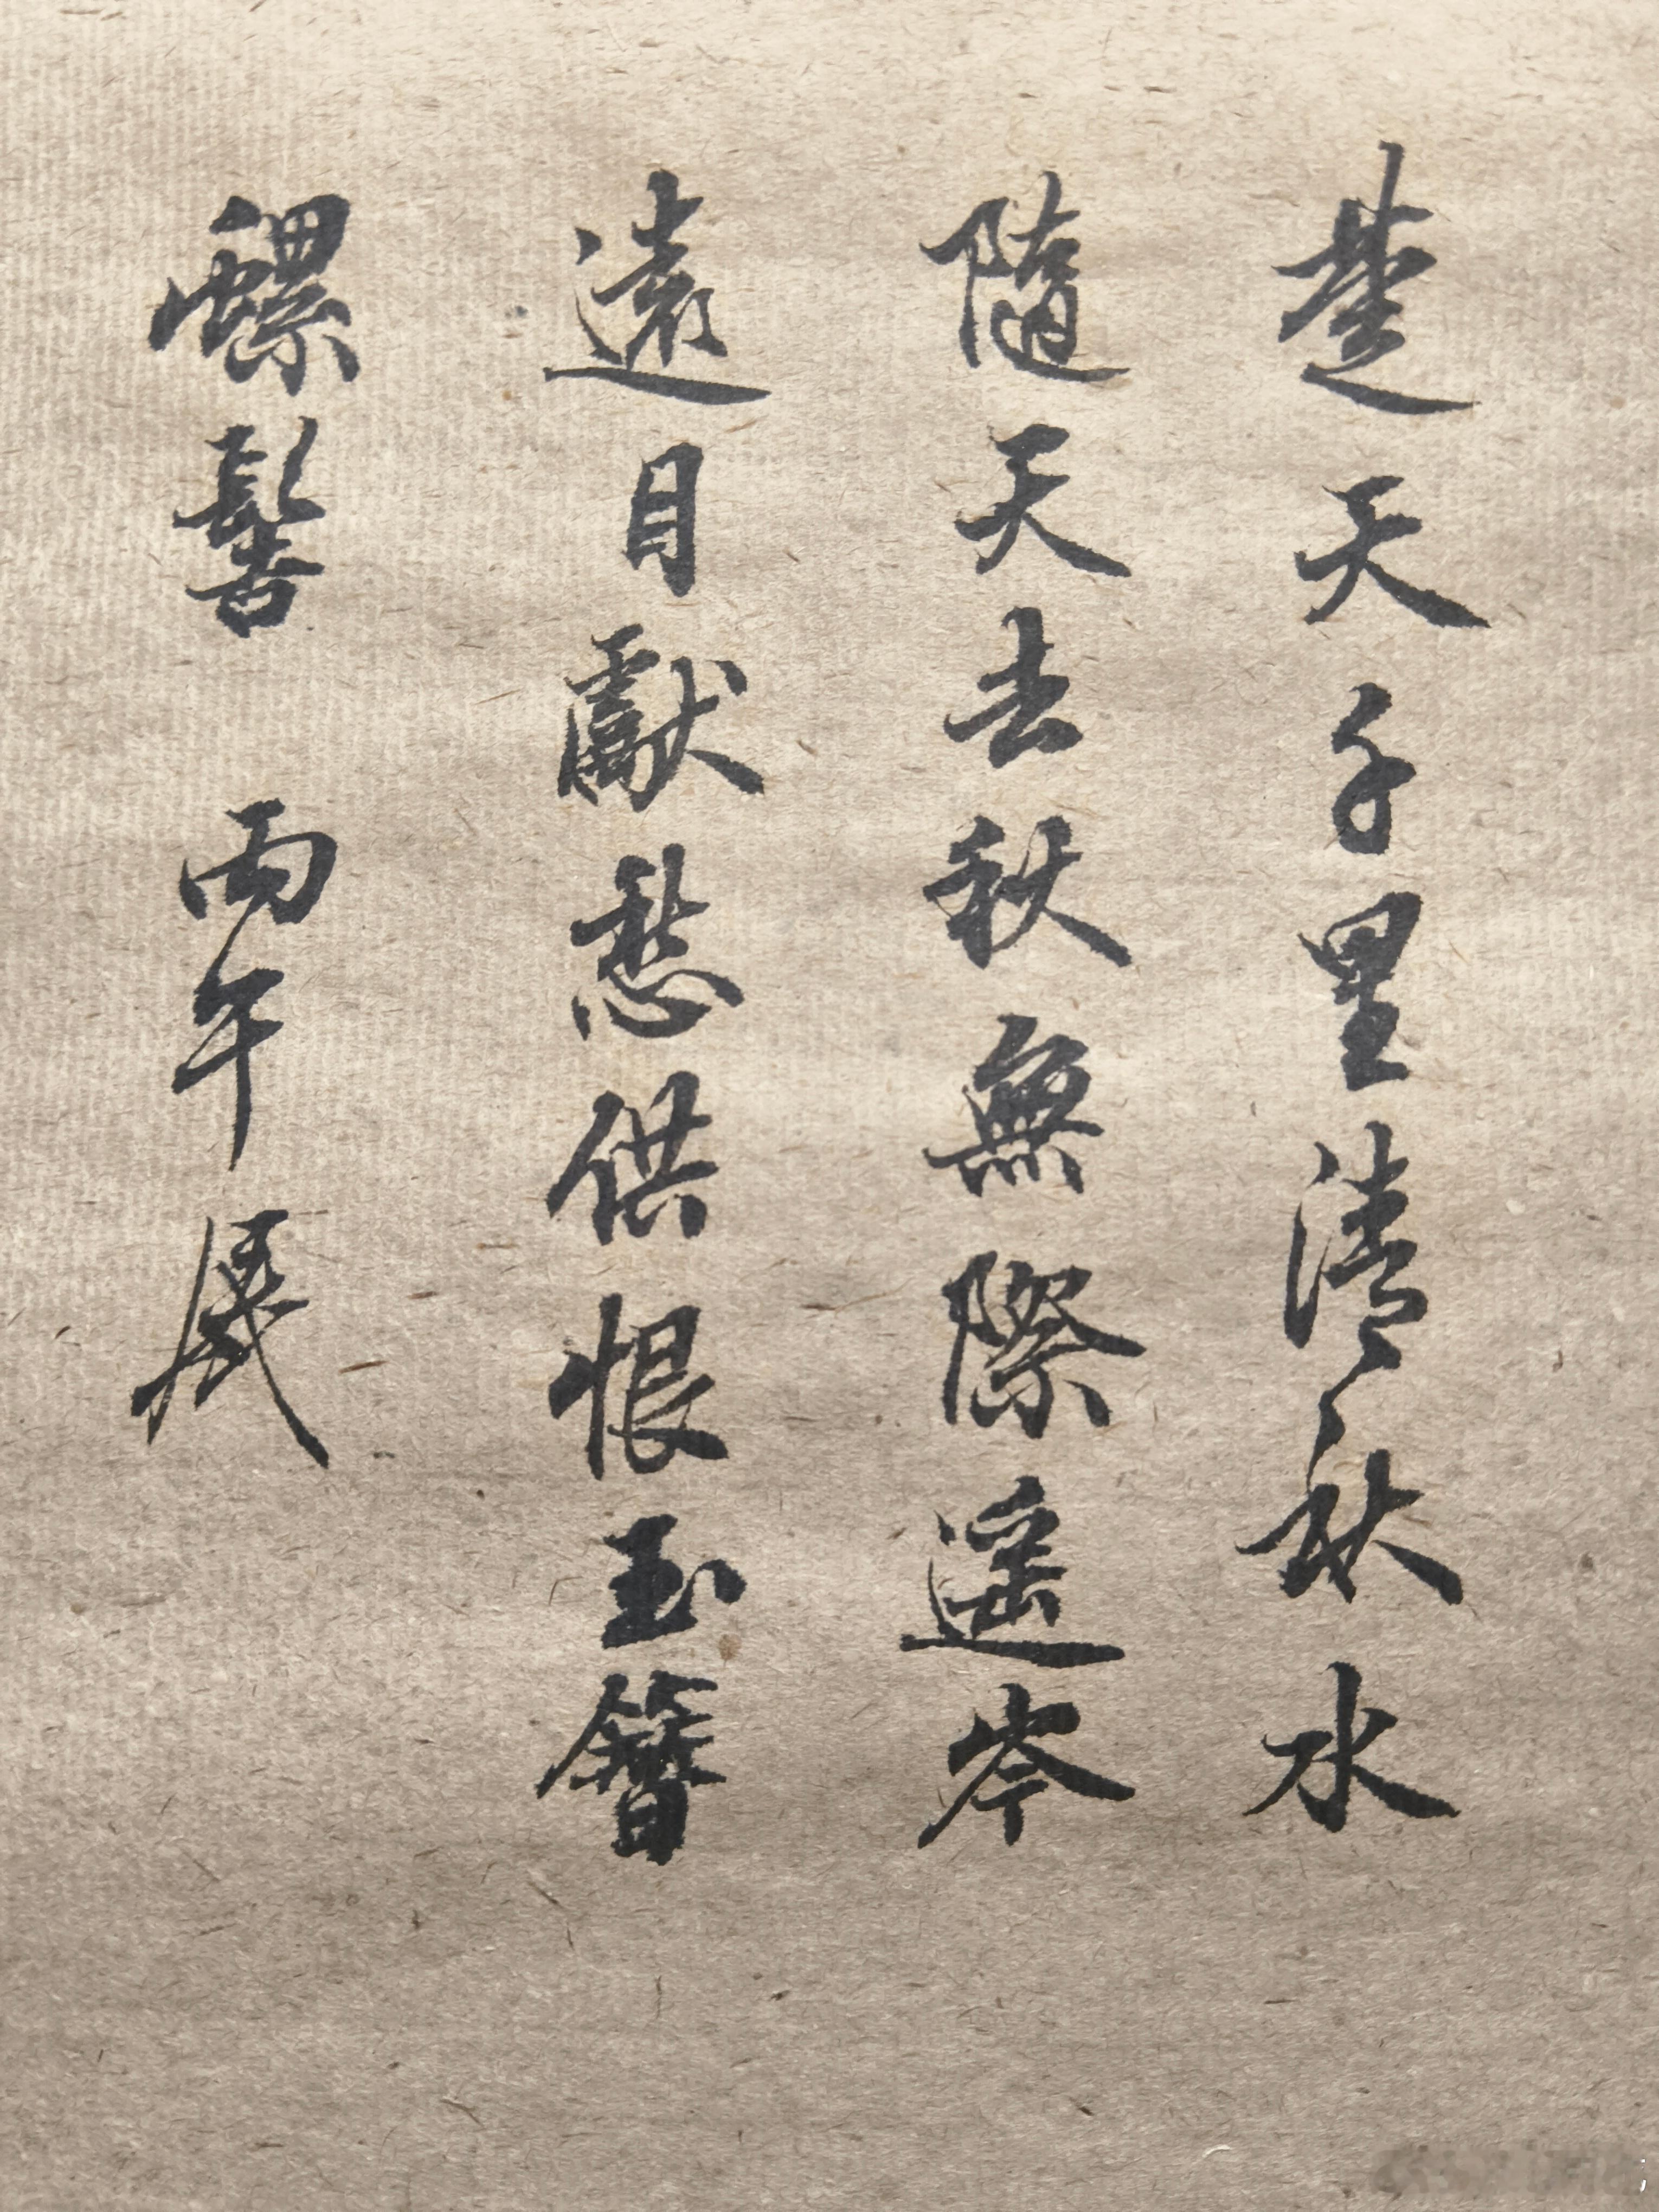 楚天千里清秋水
隨天去秋無際遥岑
遠目獻愁供恨玉簪
螺髻 丙午 晟